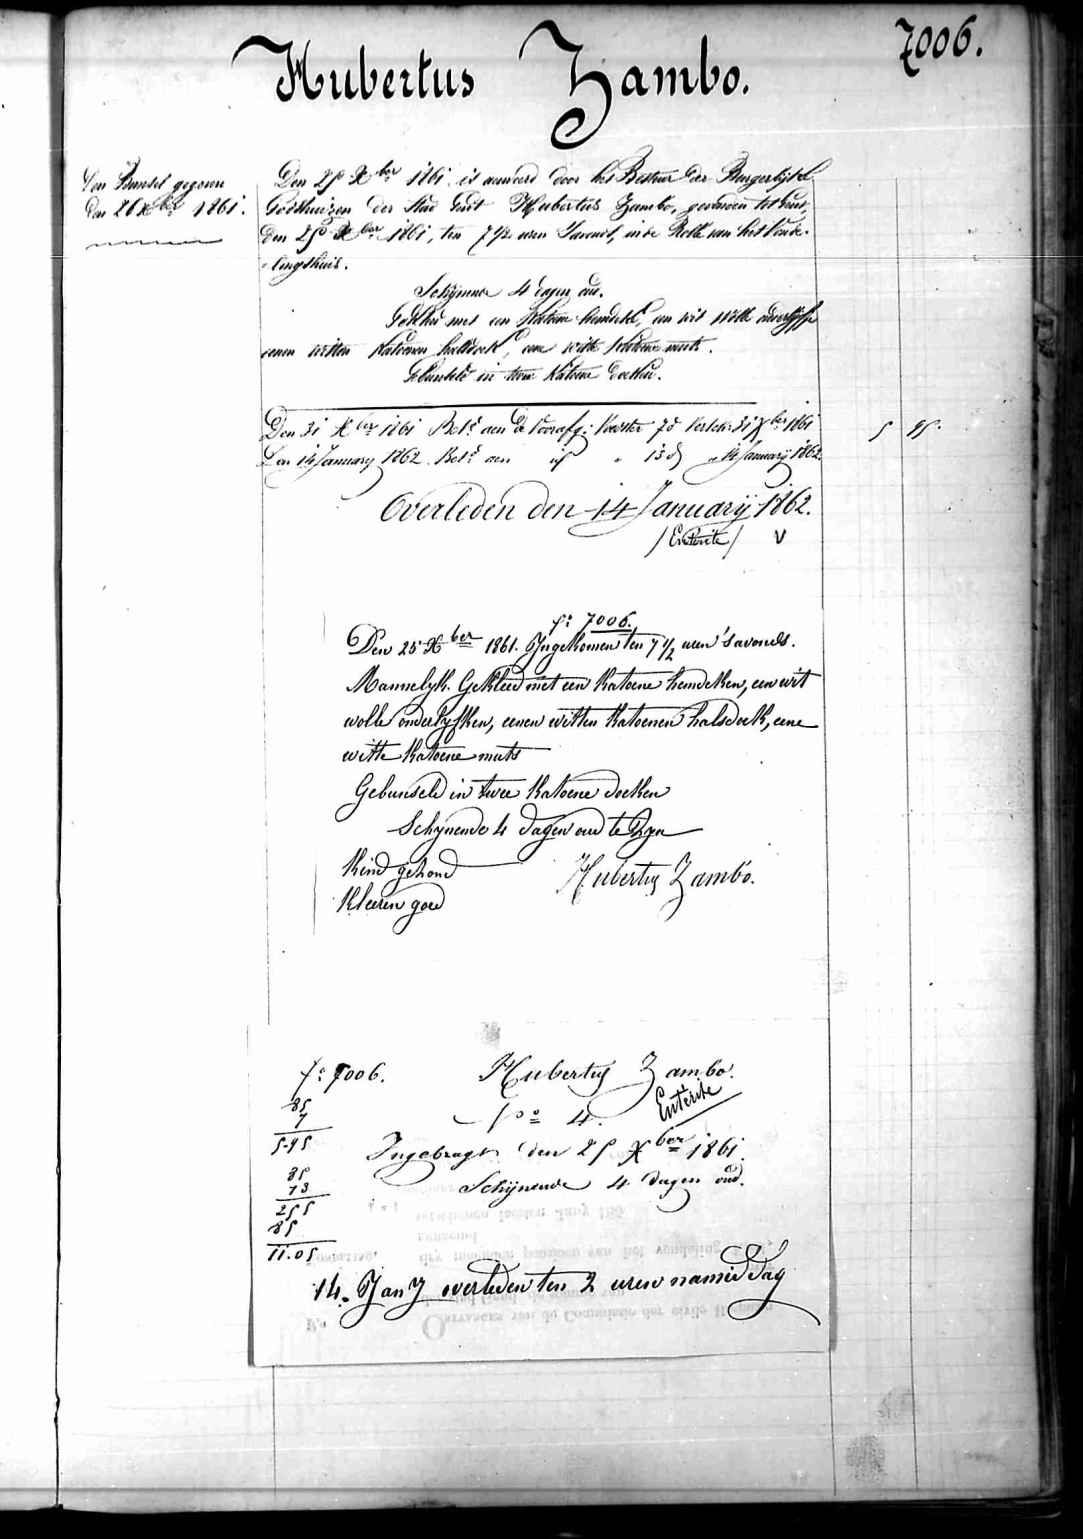 7006.
Hubertus Zambo.
Den Bunsel gegeven
den 26 Xber 1861.
Den 25 Xber 1861. is aenveerd door het Bestuur der Burgerlijke
Godshuizen der Stad Gent Hubertus Zambo, gevonden tot Gent,
den 25 Xber 1861, ten 7 1/2 uren 's avonds, in de Rolle van het Vonde-
lingshuis.
Schijnende 4 dagen oud.
Gekleed met een katoene hemdeken, een wit wolle onderlyfken
eenen witten katoenen halsdoek, eene witte katoene muts.
Gebunseld in twee katoene doeken.
Den 31 Xber 1861 Betd aen de Voorafg: Voester 7d Verlet: 31 Xber 1861 5 95.
Den 14 January 1862. Betd aen id " 13 d " 14 January 1862.
Overleden den 14 Januarij 1862.
/Enterite/ V
fo 7006.
Den 25 Xber 1861. Ingekomen ten 7 1/2 uren 's avonds.
Mannelyk. Gekleed met een katoene hemdeken, een wit
wolle onderlyfken, eenen witten katoenen halsdoek, eene
witte katoene muts
Gebunseld in twee katoene doeken
Schynende 4 dagen oud te Zyn
Kind gezond
Hubertus Zambo.
Kleeren goed
fo 7006. Hubertus Zambo.
Enterite
85
7
5-95
fo 4.
Ingebragt den 25 Xber 1861.
85
13
255
85
11.05
Schijnende 4 dagen oud.
14. Jany overleden ten 2 uren namiddag